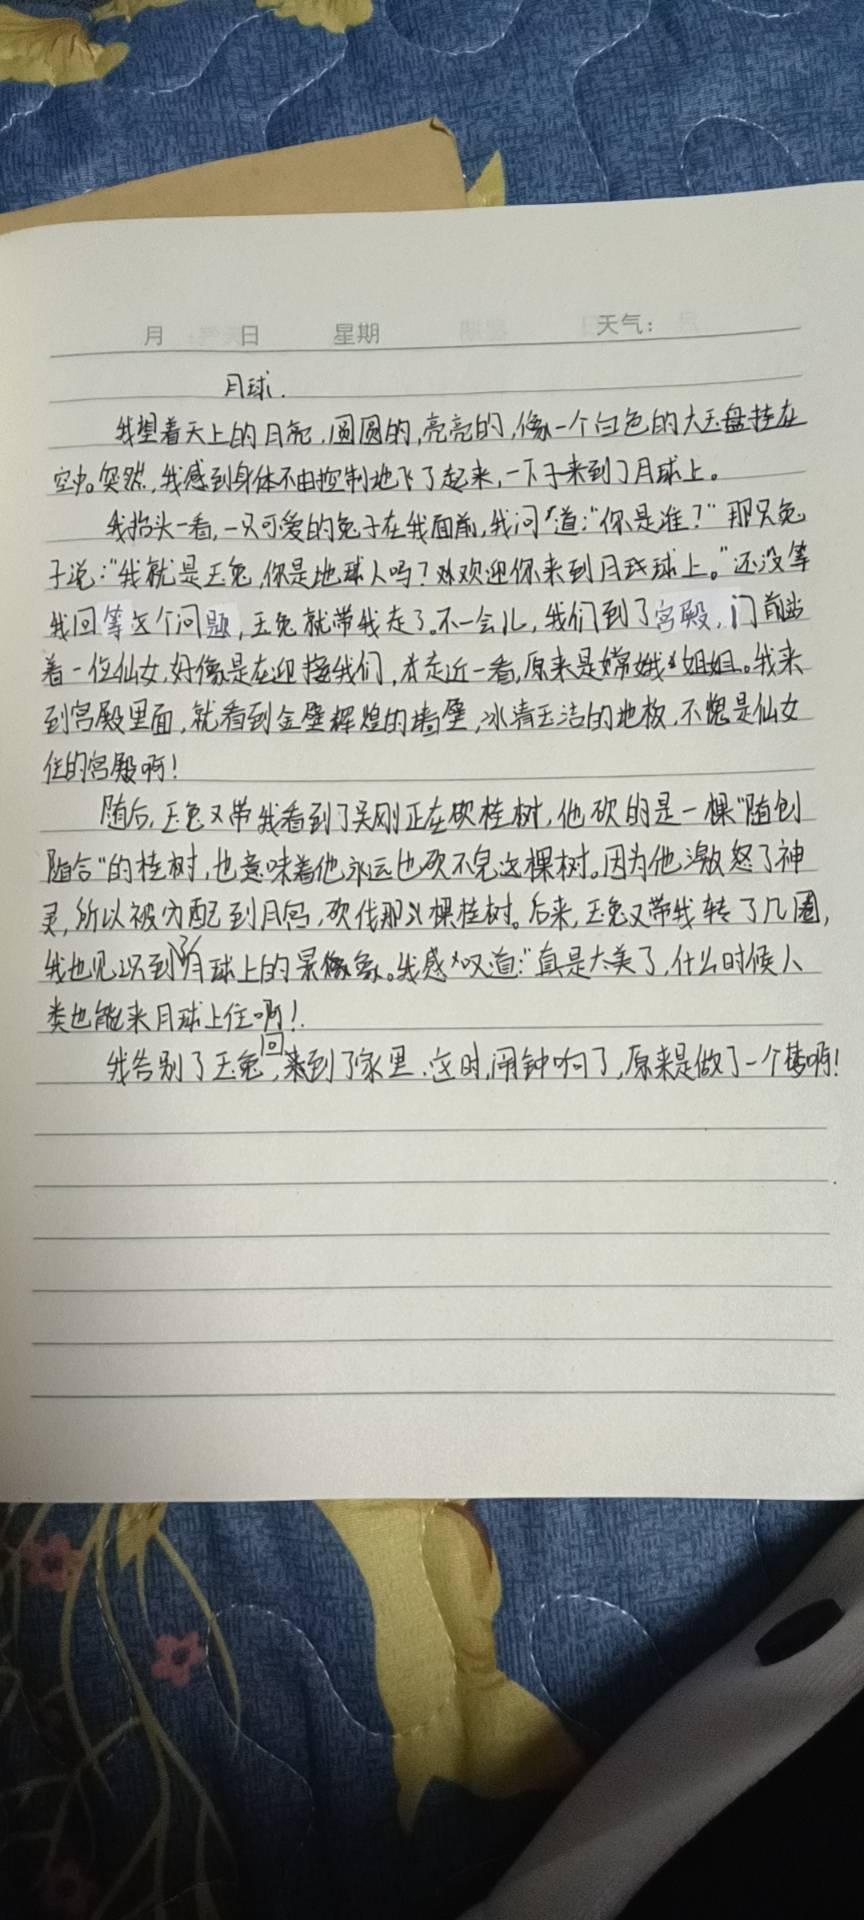 月 日 星期 天气：
月球.
我望着天上的月亮,圆圆的,亮亮的,像一个白色的大玉盘挂在
空中。突然,我感到身体不由控制地飞了起来,一下子来到了月球上。
我抬头一看,一只可爱的兔子在我面前,我问道:“你是谁？”那只兔
子说:“我就是玉兔,你是地球人吗？欢迎你来到月球上。”还没等
我回答这个问题,玉兔就带我走了。不一会儿,我们到了宫殿,门前站
着一位仙女,好像是在迎接我们,走近一看,原来是嫦娥姐姐。我来
到宫殿里面,就看到金壁辉煌的墙壁,冰清玉洁的地板,不愧是仙女
住的宫殿啊！
随后,玉兔又带我看到了吴刚正在砍桂树,他砍的是一棵“随创
随合”的桂树,也意味着他永远也砍不完这棵树。因为他激怒了神
灵,所以被分配到月宫,砍伐那棵桂树。后来,玉兔又带我转了几圈,
我也见识到了月球上的景象。我感叹道:“真是太美了,什么时候人
类也能来月球上住啊！
我告别了玉兔,回到了家里.这时,闹钟响了,原来是做了一个梦啊！